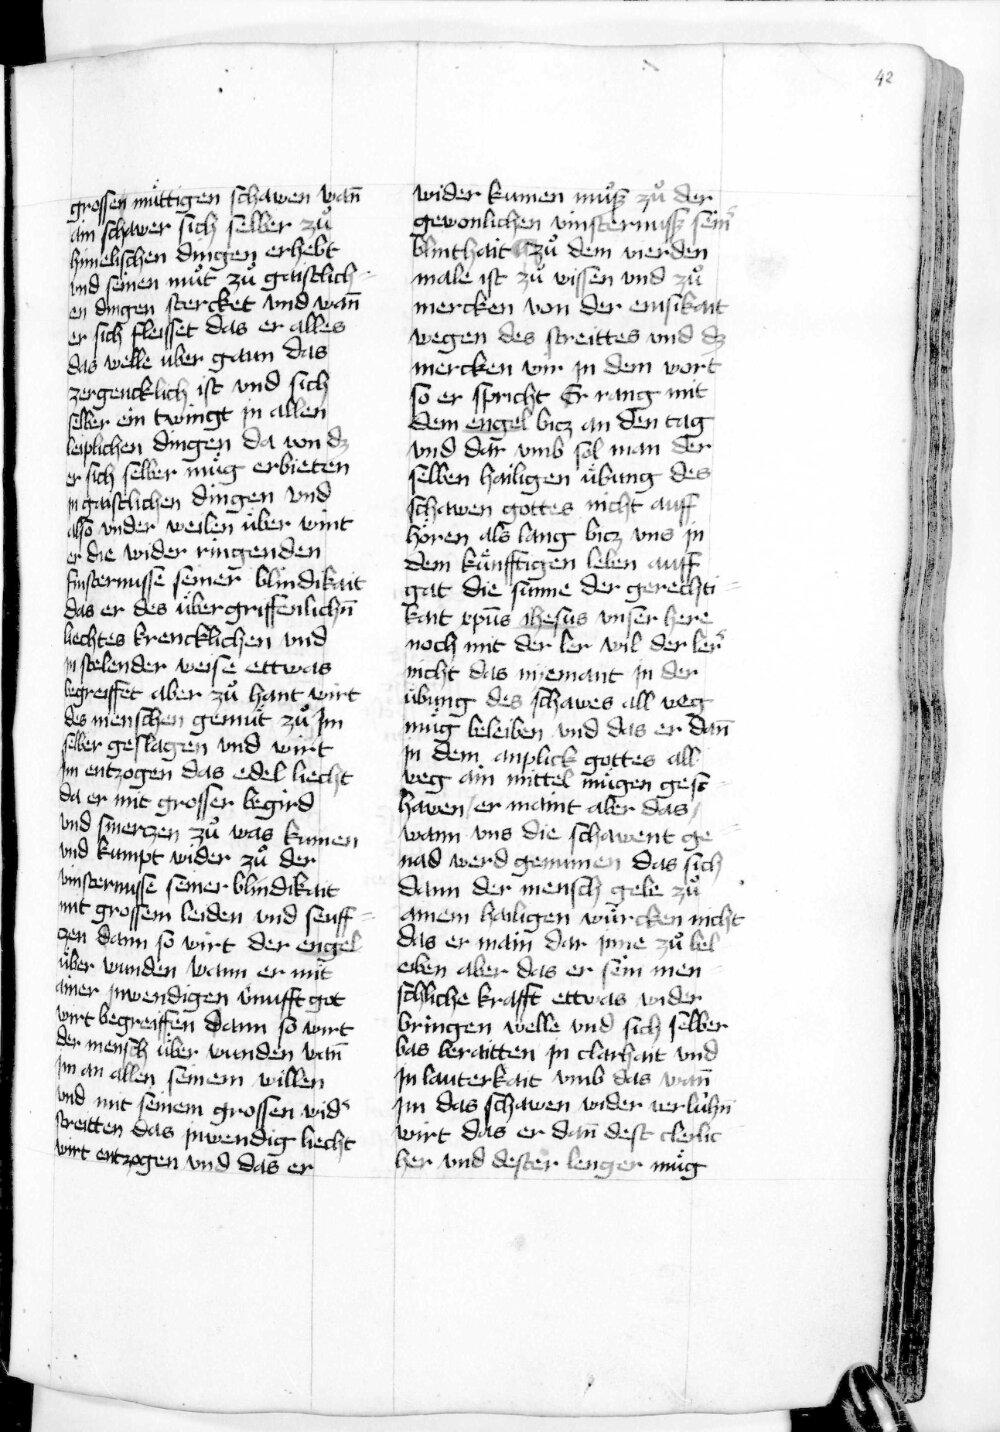 42
grossen mu̇ttigen schawen wan̄
ain schawer sich selber zů
himelischen dingen erhebt
vnd seinen můt zů gaistlich=
en dingen stercket vnd wan̄
er sich fleisset das er alles
das welle uber gaun das
zergencklich ist vnd sich
selber ein twingt in allen
leiplichen dingen da von dz
er sich selber mu̇g erbieten
in gaistlichen dingen vnd
also vnder weilen u̇ber wint
er die wider ringenden
finsternusse seiner blindikait
das er des u̇bergriffenlichn̄
liechtes krencklichen vnd
in stelender weise ettwas
begreiffet aber zů hant wirt
des menschen gemu̇t zů Im
selber geslagen vnd wirt
im entzogen das edel liecht
da er mit grosser begird
vnd smerczen zů was kumen
vnd kumpt wider zů der
vinsternusse seiner blindikait
mit grossem leiden vnd seuff=
zen dann so wirt der engel
u̇ber wunden wann er mit
ainer inwendigen v̄nufft got
wirt begreiffen dann so wirt
der mensch u̇ber wunden wan̄
im an allen seinem willen
vnd mit seinem grossen wid᷑
streitten das inwendig liecht
wirt entzogen vnd das er
wider kumen mu̇sz zů der
gewonlichen vinsternusz sein᷑
blinthait zů dem vierden
male ist zů wissen vnd zů
mercken von der emsikait
wegen des streittes vnd dz
mercken wir in dem wort
so er spricht Er rang mit
dem engel bicz an den tag
vnd dar vmb sol man der
selben hailigen u̇bung des
schawen gottes nicht auff
hören als lang bicz vns in
dem ku̇nfftigen leben auff
gat die sunne der gerechti=
kait xpūs ihesus vnser here
noch mit der ler wil der ler᷑
nicht das niemant in der
u̇bung des schawes all weg
mu̇g beleiben vnd das er dan̄
in dem anplick gottes all
weg ain mittel mu̇gen gesc=
hawen / er maint aber das /
wann vns die schawent ge=
nad werd genumen das sich
dann der mensch gebe zů
ainem hailigen wu̇rcken nicht
das er main dar inne zů bel
eiben aber das er sein men=
schliche krafft ettwas wider
bringen welle vnd sich selber
bas beraitten in clarhait vnd
in lauterkait vmb das wan̄
im das schawen wider verlu̇hn̄
wirt das er dan̄ dest clerlic
her vnd dester lenger mu̇g